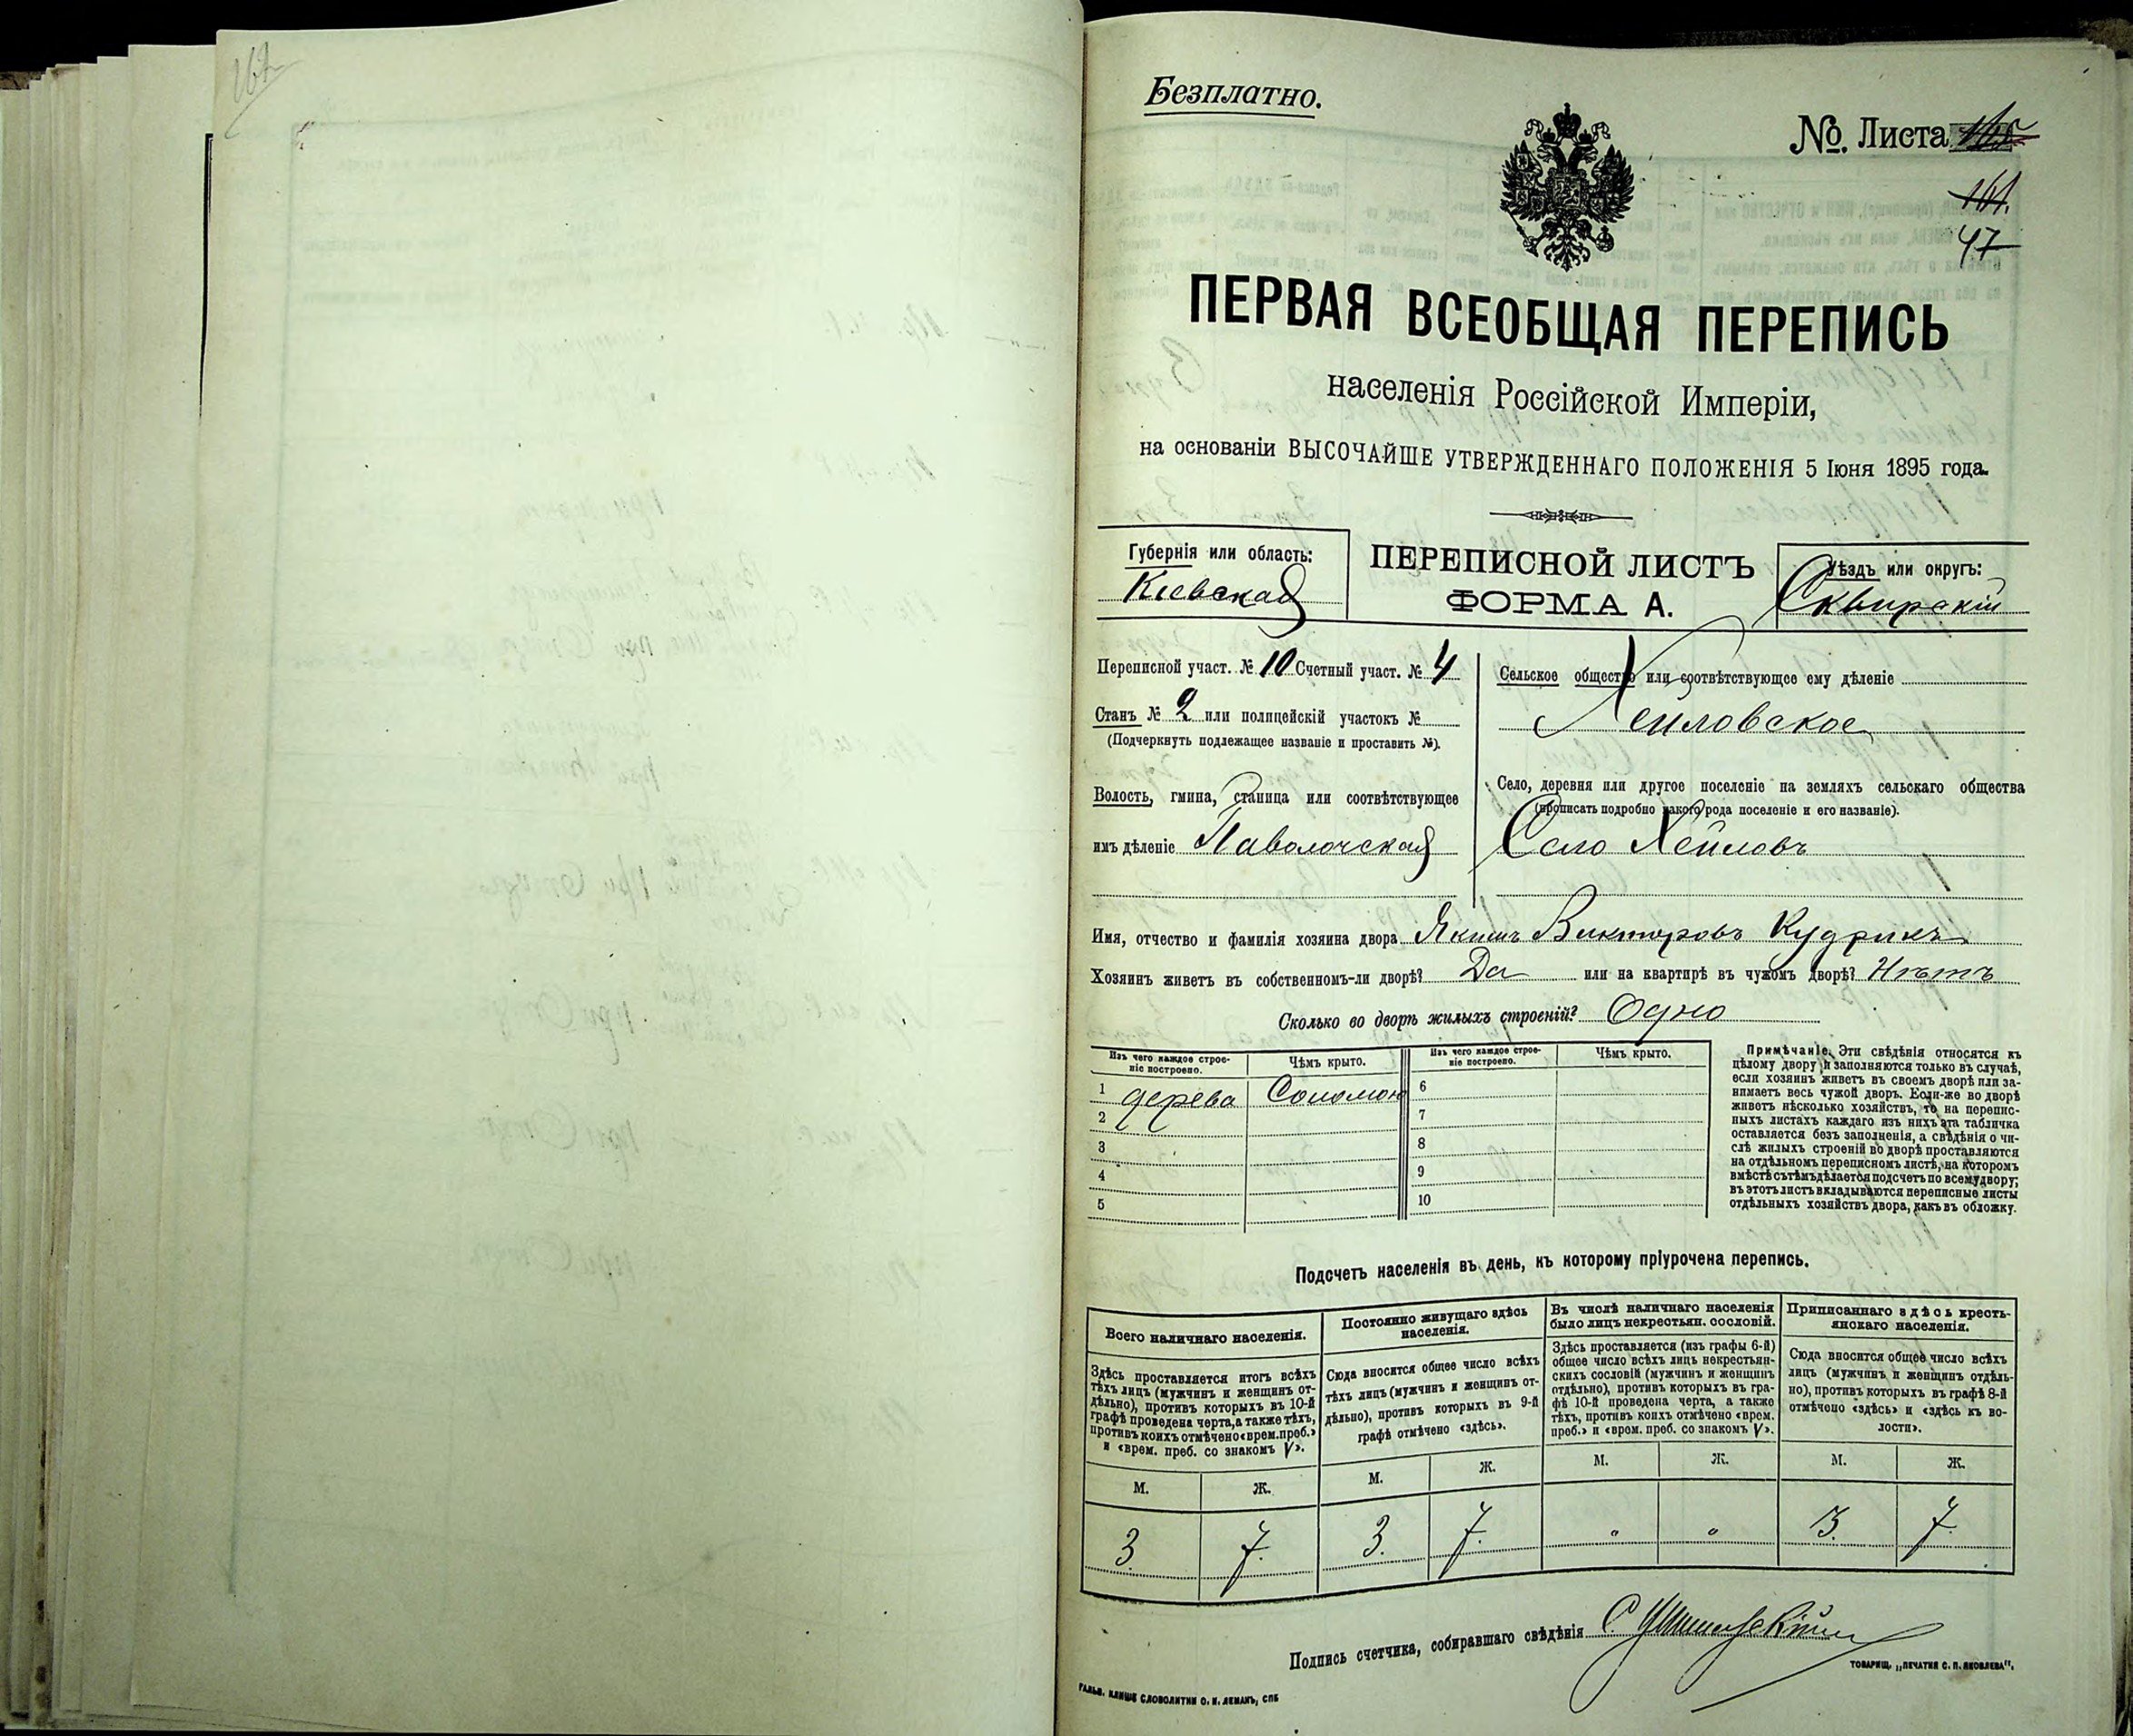 Безплатно.
№. Листа 165
161.
47
ПЕРВАЯ ВСЕОБЩАЯ ПЕРЕПИСЬ
населенія Россійской Имперіи,
на основаніи ВЫСОЧАЙШЕ УТВЕРЖДЕННАГО ПОЛОЖЕНІЯ 5 Іюня 1895 года.
Губернія или область:
Кіевская
ПЕРЕПИСНОЙ ЛИСТЪ
ФОРМА А.
Уѣздъ или округъ:
Сквирскій
Переписной участ. № 10 Счетный участ. № 4
Станъ № 2 или полицейскій участокъ №
(Подчеркнуть подлежащее названіе и проставить №).
Волость, гмина, станица или соотвѣтствующее
имъ дѣленіе Паволочская
Сельское общество или соотвѣтствующее ему дѣленіе
Хейловское
Село, деревня или другое поселеніе на земляхъ сельскаго общества
(прописать подробно какого рода поселеніе и его названіе).
Село Хейловъ
Имя, отчество и фамилія хозяина двора Якимъ Викторовъ Кудринъ
Хозяинъ живетъ въ собственномъ-ли дворѣ? Да или на квартирѣ въ чужомъ дворѣ? Нѣтъ
Сколько во дворѣ жилыхъ строеній? Одно
Изъ чего каждое строе-
ніе построено.
Чѣмъ крыто.
1 дерева Соломою
2
3
4
5
Изъ чего каждое строе-
ніе построено.
Чѣмъ крыто.
6
7
8
9
10
Примѣчаніе. Эти свѣдѣнія относятся къ
цѣлому двору и заполняются только въ случаѣ,
если хозяинъ живетъ въ своемъ дворѣ или за-
нимаетъ весь чужой дворъ. Если-же во дворѣ
живетъ нѣсколько хозяйствъ, то на перепис-
ныхъ листахъ каждаго изъ нихъ эта табличка
оставляется безъ заполненія, а свѣдѣнія о чи-
слѣ жилыхъ строеній во дворѣ проставляются
на отдѣльномъ переписномъ листѣ, на которомъ
вмѣстѣ съ тѣмъ дѣлается подсчетъ по всему двору;
въ этотъ листъ вкладываются переписные листы
отдѣльныхъ хозяйствъ двора, какъ въ обложку.
Подсчетъ населенія въ день, къ которому пріурочена перепись.
Всего наличнаго населенія.
Здѣсь проставляется итогъ всѣхъ
тѣхъ лицъ (мужчинъ и женщинъ от-
дѣльно), противъ которыхъ въ 10-й
графѣ проведена черта, а также тѣхъ,
противъ коихъ отмѣчено «врем. преб.»
и «врем. преб. со знакомъ V».
М. Ж.
3 7.
Постоянно живущаго здѣсь
населенія.
Сюда вносится общее число всѣхъ
тѣхъ лицъ (мужчинъ и женщинъ от-
дѣльно), противъ которыхъ въ 9-й
графѣ отмѣчено «здѣсь».
М. Ж.
3. 7.
Въ числѣ наличнаго населенія
было лицъ некрестьян. сословій.
Здѣсь проставляется (изъ графы 6-й)
общее число всѣхъ лицъ некрестьян-
скихъ сословій (мужчинъ и женщинъ
отдѣльно), противъ которыхъ въ гра-
фѣ 10-й проведена черта, а также
тѣхъ, противъ коихъ отмѣчено «врем.
преб.» и «врем. преб. со знакомъ V».
М. Ж.
" "
Приписаннаго здѣсь кресть-
янскаго населенія.
Сюда вносится общее число всѣхъ
лицъ (мужчинъ и женщинъ отдѣль-
но), противъ которыхъ въ графѣ 8-й
отмѣчено «здѣсь» и «здѣсь къ во-
лости».
М. Ж.
3. 7.
Подпись счетчика, собиравшаго свѣдѣнія
ТОВАРИЩ. „ПЕЧАТНЯ С. П. ЯКОВЛЕВА".
ГАЛЬВ. КЛИШЕ СЛОВОЛИТНИ О. И. ЛЕМАНЪ, СПБ